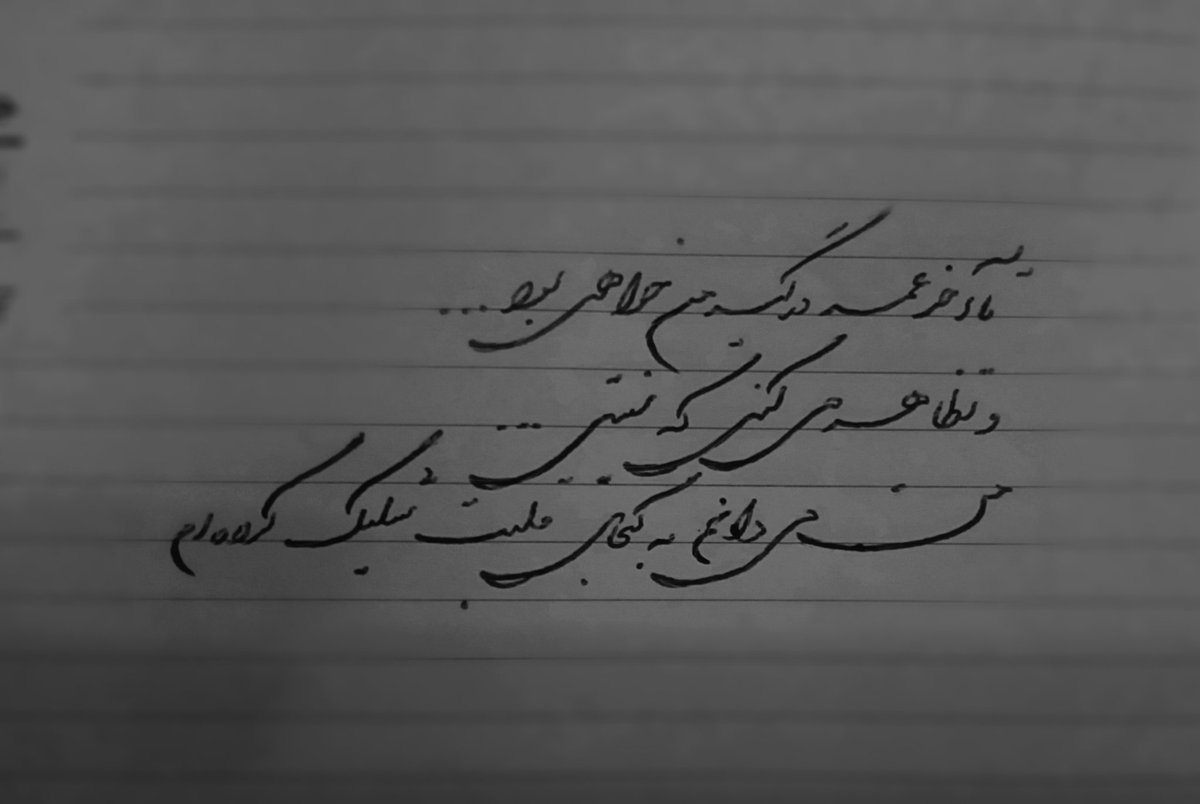 تا آخر عمر درگیر من خواهی بود ...
و تظاهر می کنی که نیستی ...
من می دانم به کجای قلبت شلیک کرده ام